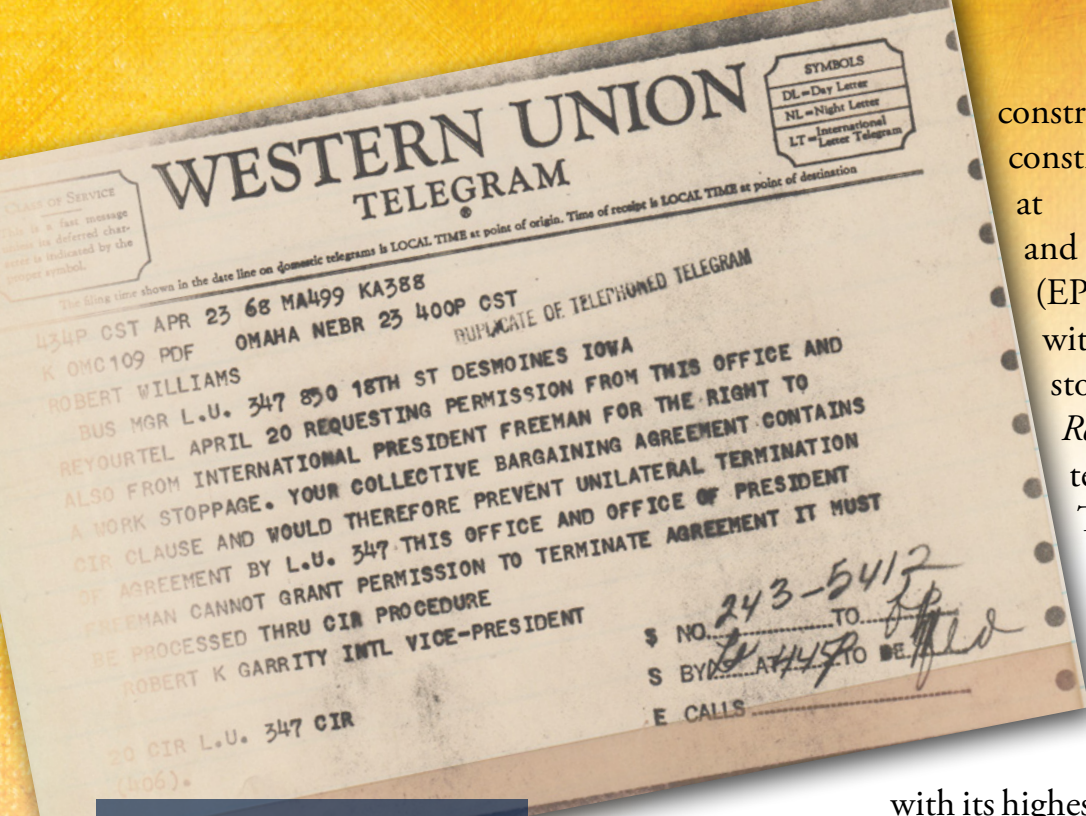 WESTERN UNION
TELEGRAM
®
SYMBOLS
DL=Day Letter
NL=Night Letter
LT=International Letter Telegram
CLASS OF SERVICE
This is a fast message
unless its deferred char-
acter is indicated by the
proper symbol.
The filing time shown in the date line on domestic telegrams is LOCAL TIME at point of origin. Time of receipt is LOCAL TIME at point of destination
434P CST APR 23 68 MA499 KA388
K OMC109 PDF OMAHA NEBR 23 400P CST
DUPLICATE OF TELEPHONED TELEGRAM
ROBERT WILLIAMS
BUS MGR L.U. 347 850 18TH ST DESMOINES IOWA
REYOURTEL APRIL 20 REQUESTING PERMISSION FROM THIS OFFICE AND
ALSO FROM INTERNATIONAL PRESIDENT FREEMAN FOR THE RIGHT TO
A WORK STOPPAGE. YOUR COLLECTIVE BARGAINING AGREEMENT CONTAINS
CIR CLAUSE AND WOULD THEREFORE PREVENT UNILATERAL TERMINATION
OF AGREEMENT BY L.U. 347 THIS OFFICE AND OFFICE OF PRESIDENT
FREEMAN CANNOT GRANT PERMISSION TO TERMINATE AGREEMENT IT MUST
BE PROCESSED THRU CIR PROCEDURE
ROBERT K GARRITY INTL VICE-PRESIDENT
20 CIR L.U. 347 CIR
(406).
$ NO. 243-5412 TO
S BY AT 447P TO BE
E CALLS
constr
const
at
and
(EP
wit
sto
Ra
te
T
with its highes